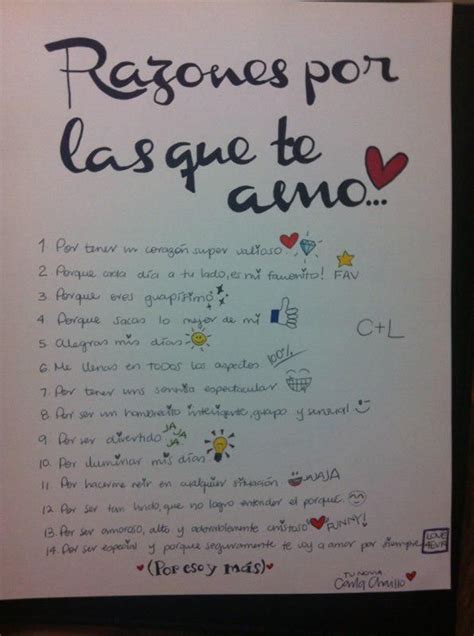 Razones por
las que te
amo...
1. Por tener un corazón super valioso
2. Porque cada día a tu lado, es mi favorito! FAV
3. Porque eres guapísimo
4. Porque sacas lo mejor de mi
C+L
5. Alegras mis días
6. Me llenas en TODOS los aspectos 100%
7. Por tener una sonrisa espectacular
8. Por ser un hombrecito inteligente, guapo y sensual
9. Por ser divertido JA JA JA
10. Por iluminar mis días
11. Por hacerme reir en cualquier situación JAJA
12. Por ser tan lindo, que no logro entender el porque.
13. Por ser amoroso, alto y adorablemente chistoso FUNNY!
14. Por ser especial y porque seguramente te voy a amar por siempre LOVE 4EVER
(Por eso y más)
TU NOVIA
Carla